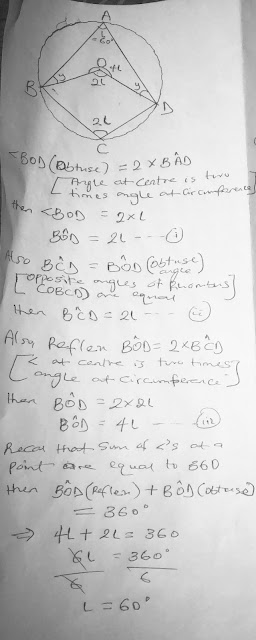 A
L
= 60°
O
4L
2L
B
y
y
D
2L
C
<BOD (Obtuse) = 2 × BÂD
[Angle at centre is two
times angle at circumference]
then <BOD = 2×L
BÔD = 2L ---- (i)
Also BĈD = BÔD (obtuse
angle)
[opposite angles of Rhombus
(OBCD) are equal]
then BĈD = 2L ---- (ii)
Also, Reflex BÔD = 2×BĈD
[< at centre is two times
angle at circumference]
then BÔD = 2×2L
BÔD = 4L ---- (iii)
Recall that sum of <'s at a
point are equal to 360
then BÔD (Reflex) + BÔD (obtuse)
= 360°
⇒ 4L + 2L = 360
6L = 360°
6 6
L = 60°